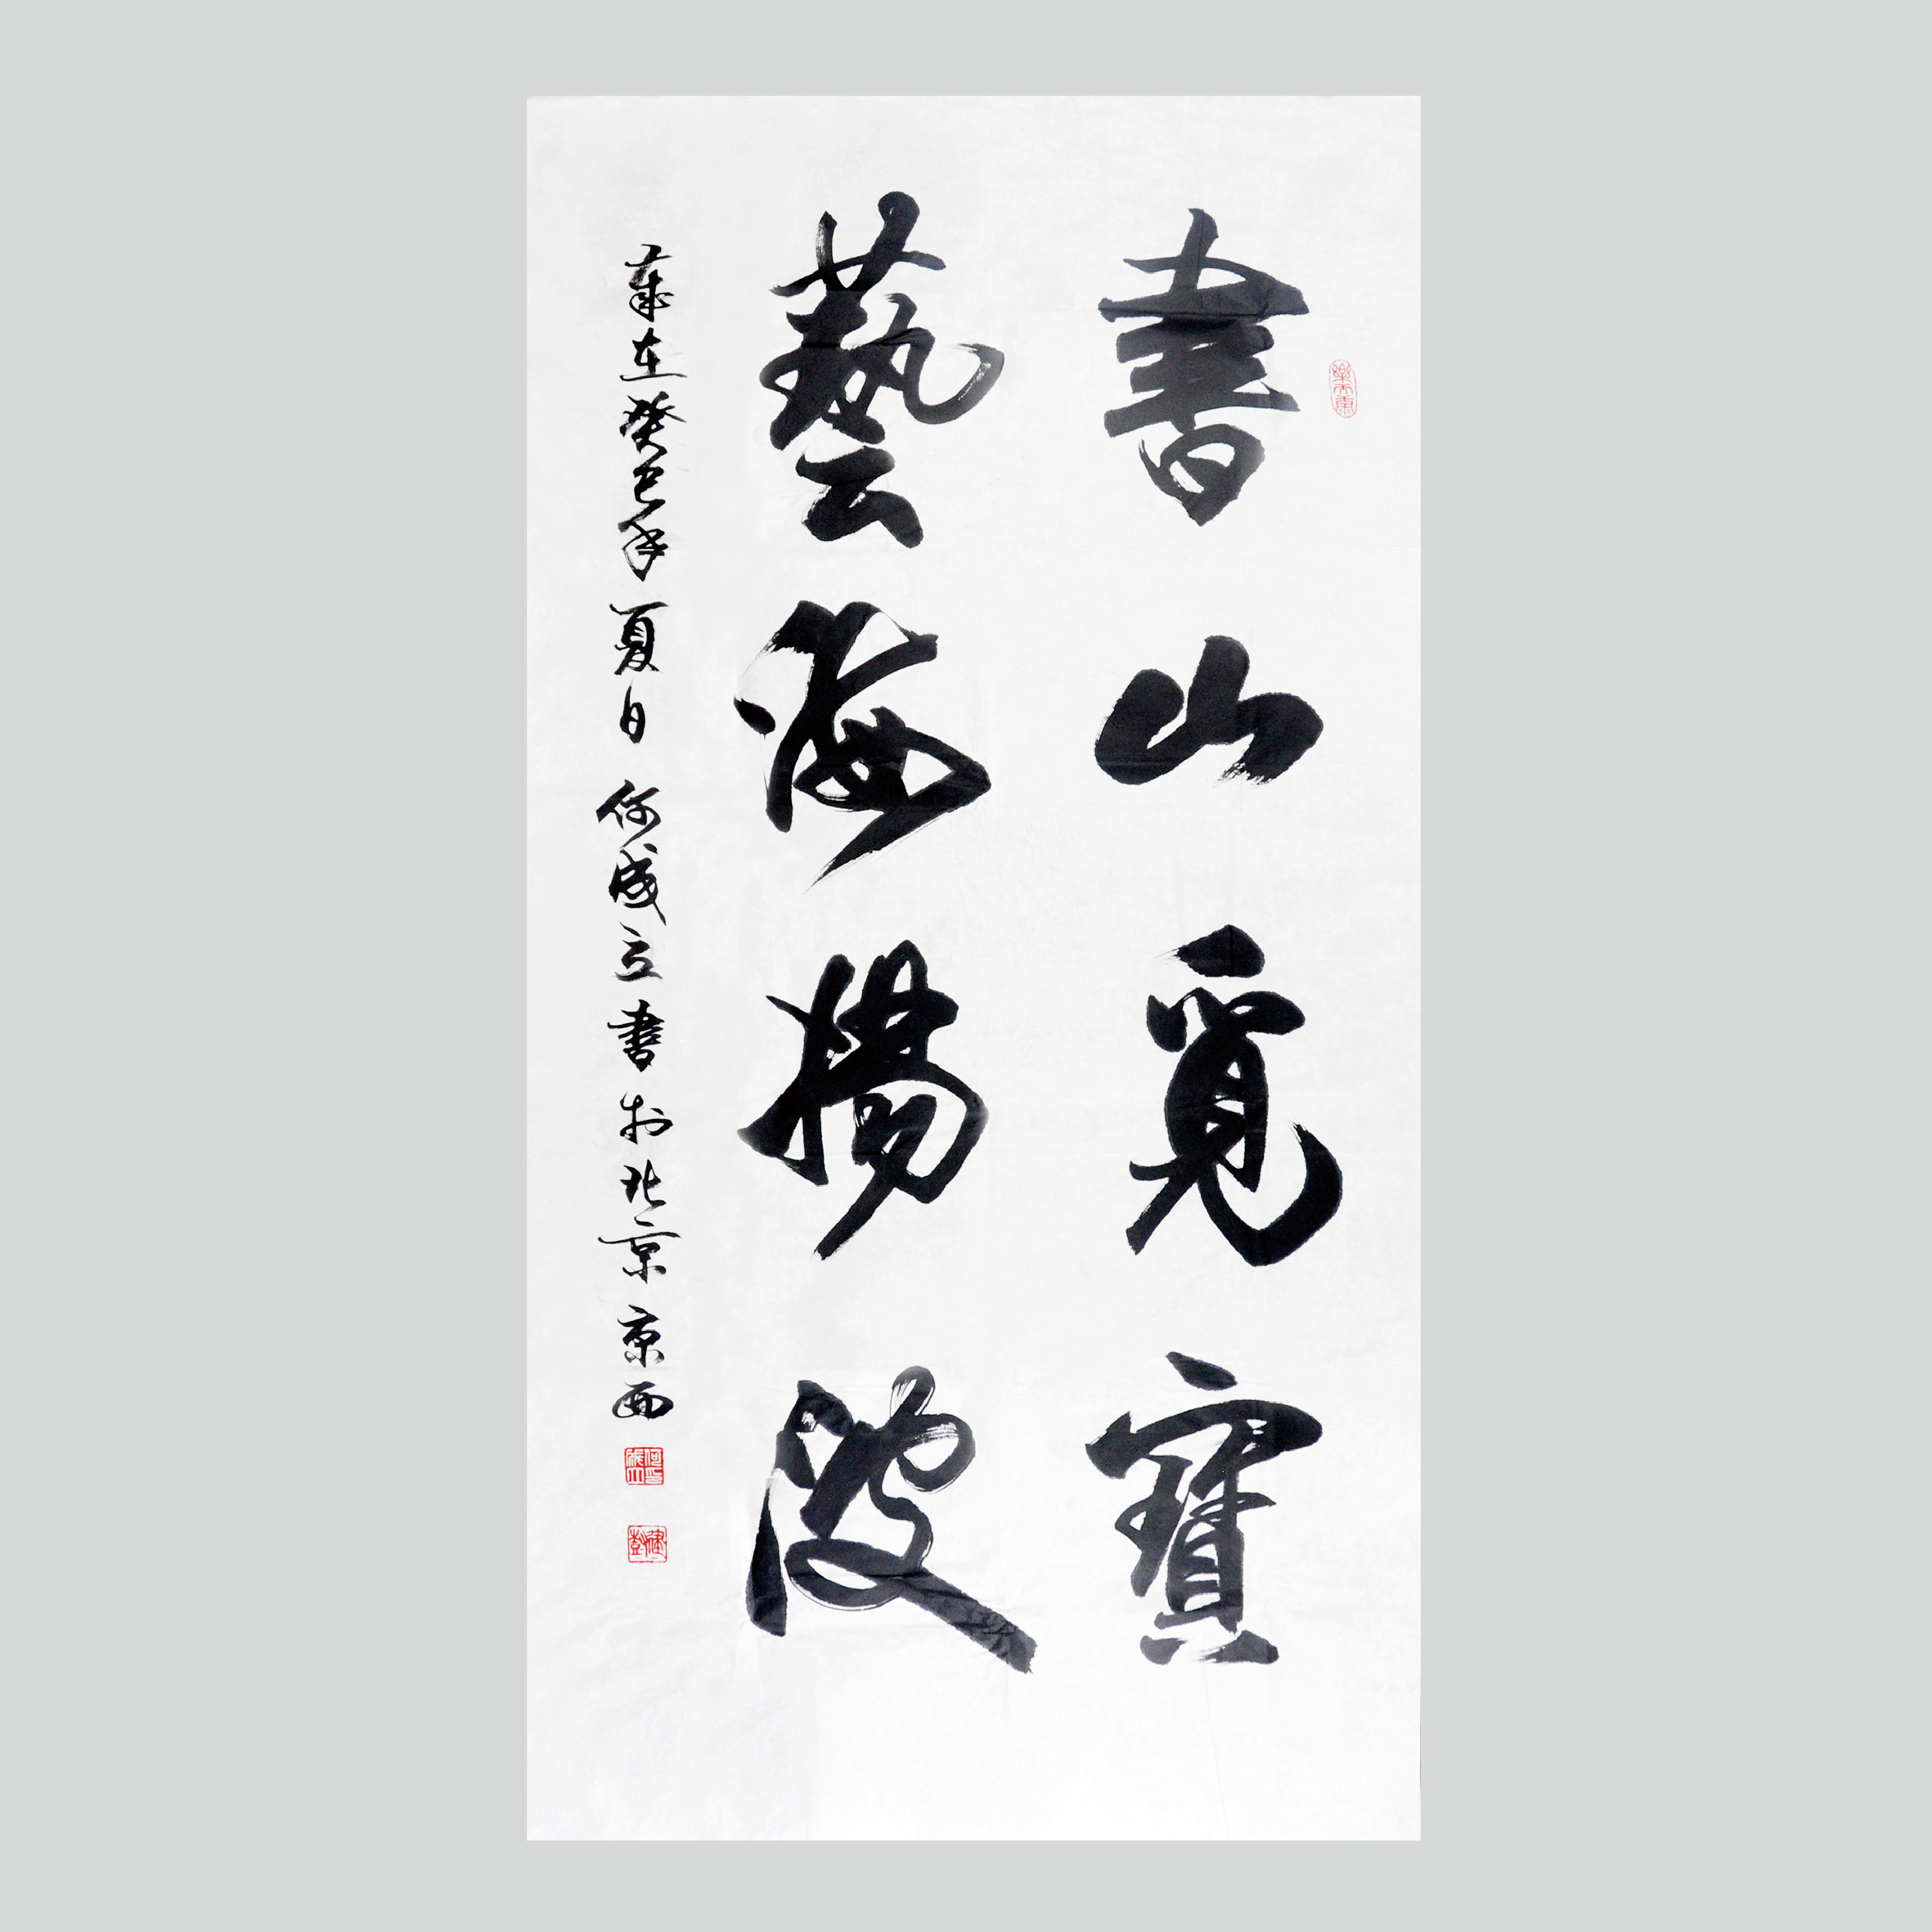 書山覓寶
藝海揚波
歲在癸巳年夏日何成立書於北京京西